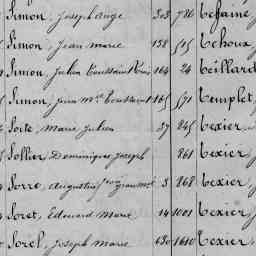 Simon, Joseph Ange 303 786 Lefaine,
Simon, Jean Marie 138 515 Lehoux,
Simon, Julien Toussaint 164 24 Téillard
Simon, Jean Toussaint 165 571 Templet,
Marie Julien 37 245 Texier,
Sollier, Dominique Joseph 861 Texier,
Serre, Augustin 3 868 Texier,
Soret, Edouard Marie 14 1001 Texier,
Sorel, Joseph Marie 630 1610 Texier,